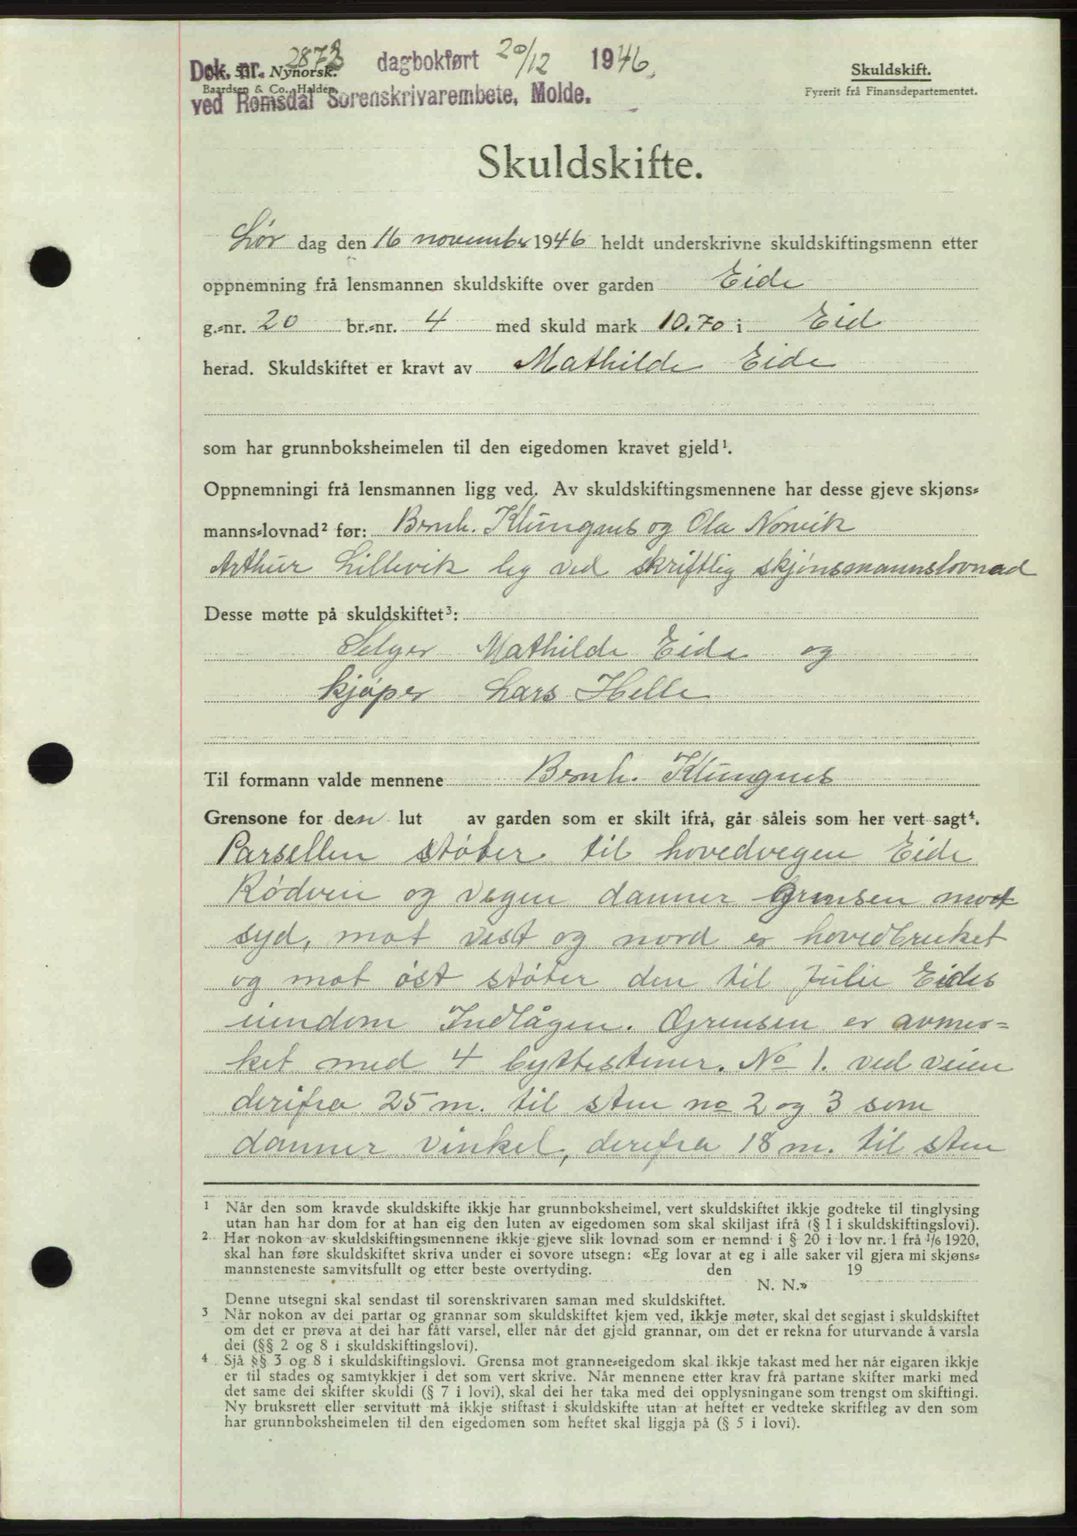 Dok. nr. 2873 dagbokført 20/12 1946.
Nr. 53. Nynorsk.
Baardsen & Co., Halden.
ved Romsdal Sorenskrivarembete, Molde.
Skuldskift.
Fyrerit frå Finansdepartementet.
Skuldskifte.
Lør dag den 16 november 1946 heldt underskrivne skuldskiftingsmenn etter
oppnemning frå lensmannen skuldskifte over garden Eide
g.-nr. 20 br.-nr. 4 med skuld mark 10.70 i Eid
herad. Skuldskiftet er kravt av Mathilde Eide
som har grunnboksheimelen til den eigedomen kravet gjeld¹.
Oppnemningi frå lensmannen ligg ved. Av skuldskiftingsmennene har desse gjeve skjøns-
manns-lovnad² før: Bernh. Klungnes og Ola Norvik
Arthur Lillevik leg ved skriftlig skjønsmannslovnad
Desse møtte på skuldskiftet³:
Selger Mathilde Eide og
kjøper Lars Helle
Til formann valde mennene Bernh. Klungnes
Grensone for den lut av garden som er skilt ifrå, går såleis som her vert sagt⁴.
Parsellen støter til hovedvegen Eide
Rødven og vegen danner grensen mot
syd, mot vest og nord er hovedbruket
og mot øst støter den til Julie Eides
eiendom Indlågen. Grensen er avmer=
ket med 4 byttestener. No 1. ved veien
derifra 25 m. til sten no 2 og 3 som
danner vinkel, derefra 18 m. til sten
¹ Når den som kravde skuldskifte ikkje har grunnboksheimel, vert skuldskiftet ikkje godteke til tinglysing
utan han har dom for at han eig den luten av eigedomen som skal skiljast ifrå (§ 1 i skuldskiftingslovi).
² Har nokon av skuldskiftingsmennene ikkje gjeve slik lovnad som er nemnd i § 20 i lov nr. 1 frå 1/6 1920,
skal han føre skuldskiftet skriva under ei sovore utsegn: «Eg lovar at eg i alle saker vil gjera mi skjøns-
mannsteneste samvitsfullt og etter beste overtyding. den 19
N. N.»
Denne utsegni skal sendast til sorenskrivaren saman med skuldskiftet.
³ Når nokon av dei partar og grannar som skuldskiftet kjem ved, ikkje møter, skal det segjast i skuldskiftet
om det er prøva at dei har fått varsel, eller når det gjeld grannar, om det er rekna for uturvande å varsla
dei (§§ 2 og 8 i skuldskiftingslovi).
⁴ Sjå §§ 3 og 8 i skuldskiftingslovi. Grensa mot granne-eigedom skal ikkje takast med her når eigaren ikkje
er til stades og samtykkjer i det som vert skrive. Når mennene etter krav frå partane skifter marki med
det same dei skifter skuldi (§ 7 i lovi), skal dei her taka med dei opplysningane som trengst om skiftingi.
Ny bruksrett eller servitutt må ikkje stiftast i skuldskifte utan at heftet er vedteke skriftleg av den som
har grunnboksheimelen til den eigedomen som heftet skal liggja på (§ 5 i lovi).